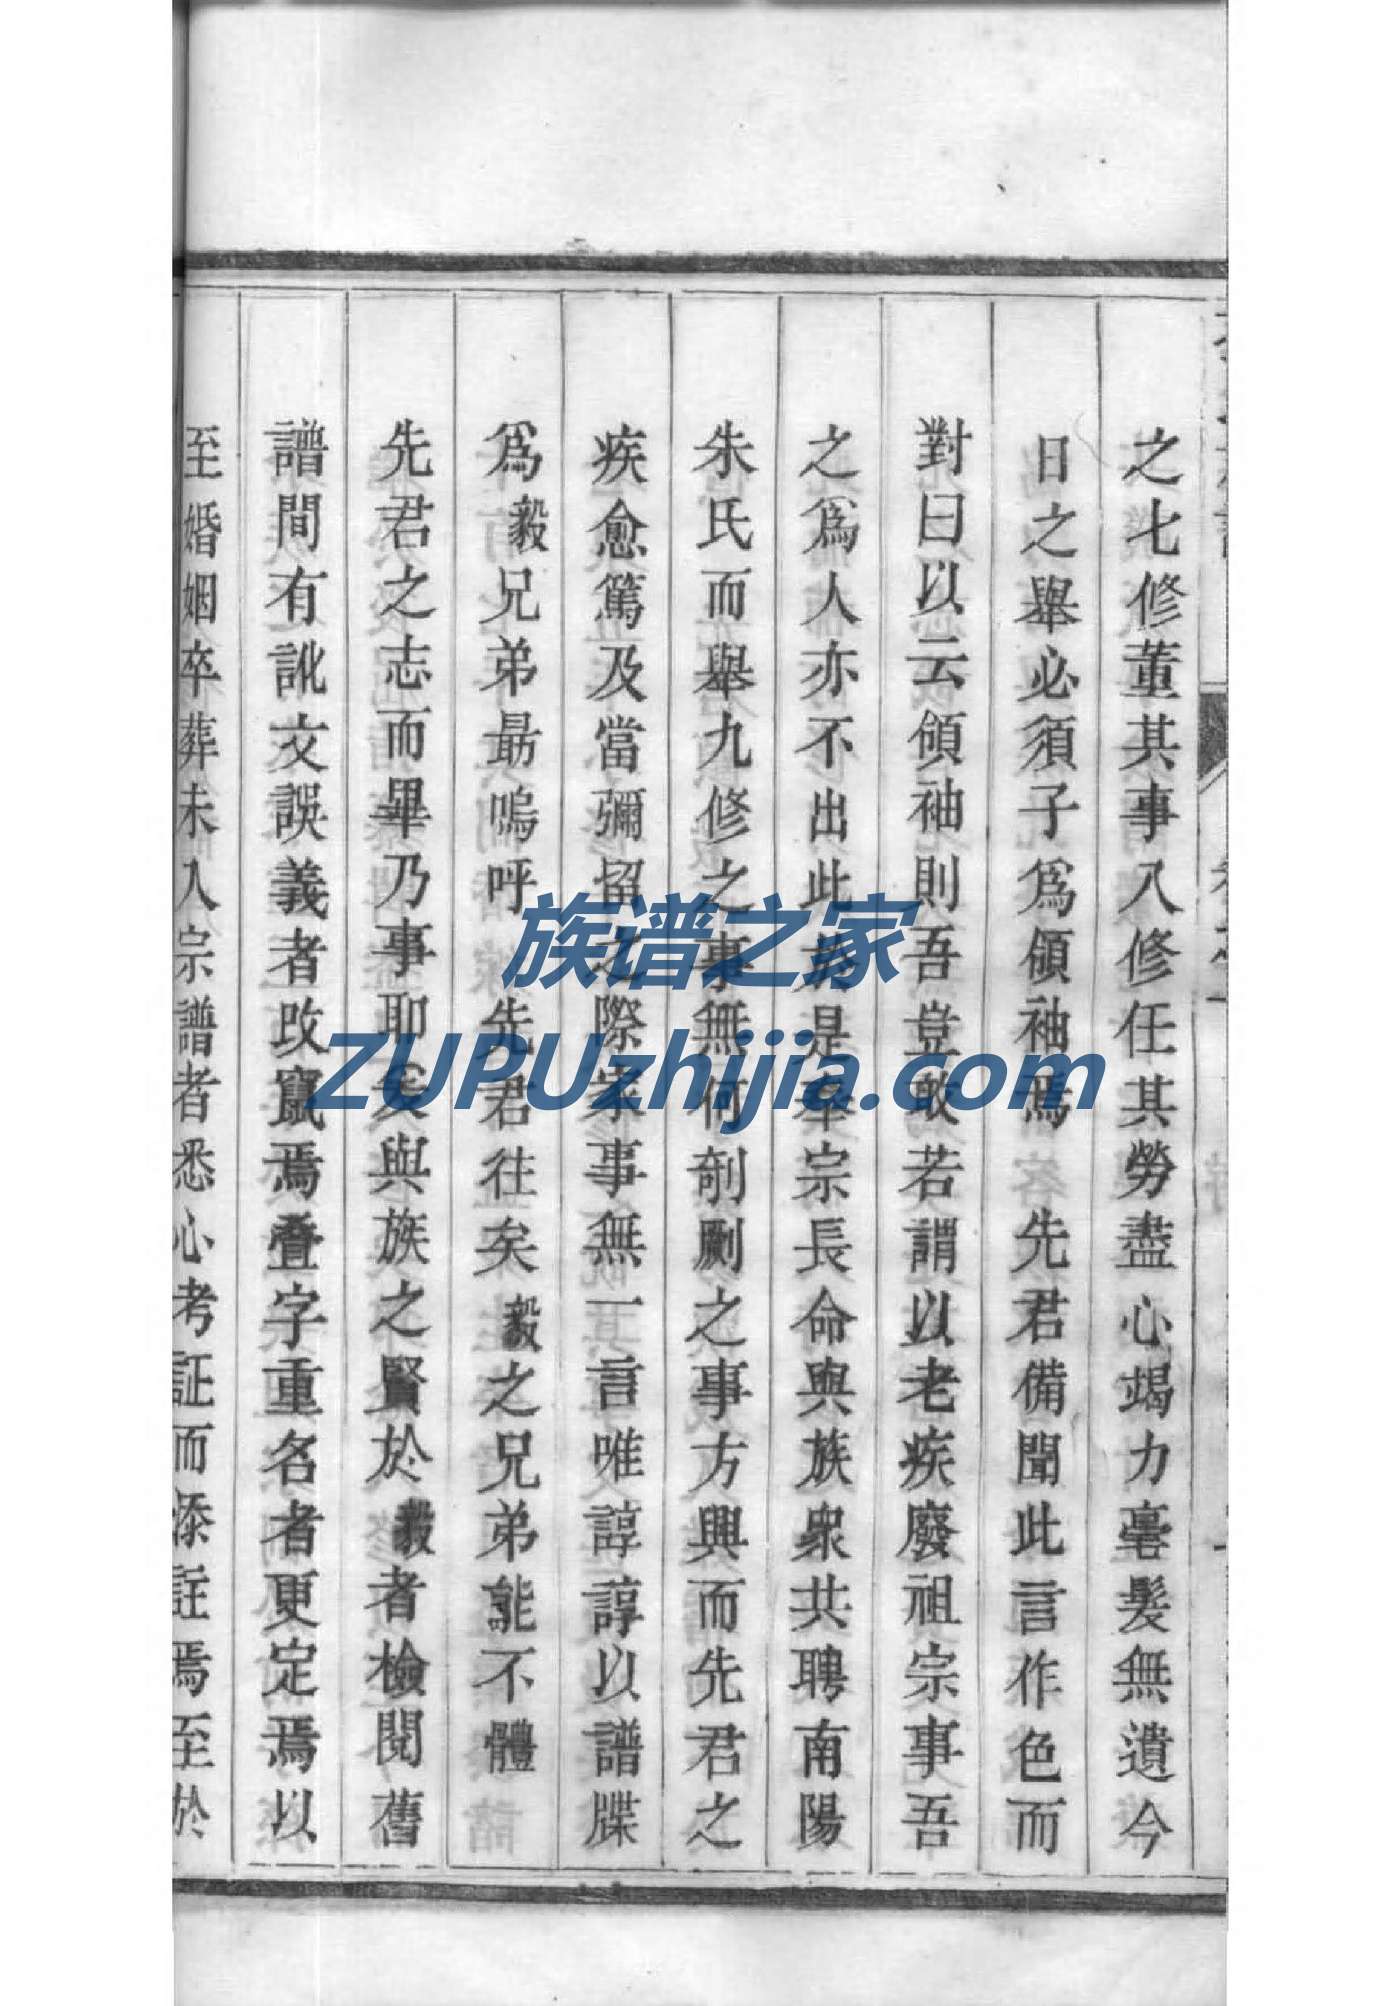 之七修董其事八修任其勞盡心竭力毫髮無遺今
日之舉必須子爲領袖焉 先君備聞此言作色而
對曰以云領袖則吾豈敢若謂以老疾廢祖宗事吾
之爲人亦不出此於是奉宗長命與族衆共聘南陽
朱氏而舉九修之事無何剞劂之事方興而先君之
疾愈篤及當彌留之際家事無一言唯諄諄以譜牒
爲毅兄弟最嗚呼 先君往矣毅之兄弟能不體
先君之志而畢乃事耶爰與族之賢於毅者檢閱舊
譜間有訛文誤義者改竄焉疊字重名者更定焉以
至婚姻卒葬未入宗譜者悉心考証而添註焉至於
族谱之家
ZUPUzhijia.com